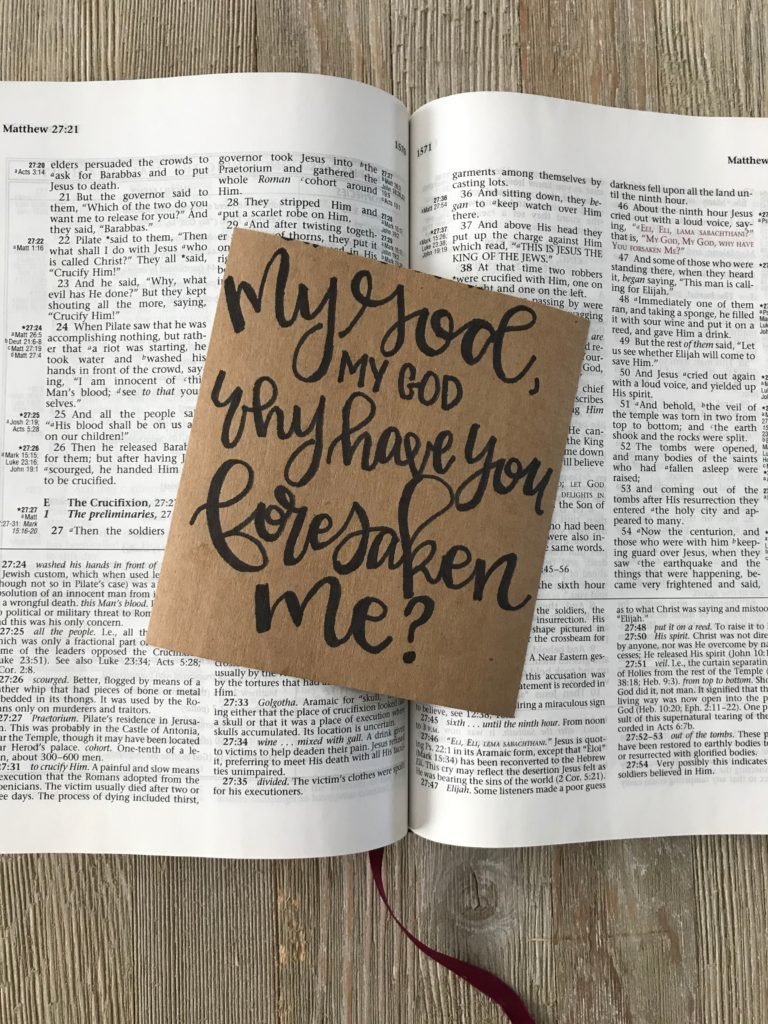 Matthew 27:21
1570
27:20
a Acts 3:14
elders persuaded the crowds to
a ask for Barabbas and to put
Jesus to death.
21 But the governor said to
them, "Which of the two do you
want me to release for you?" And
they said, "Barabbas."
27:22
a Matt 1:16
22 Pilate *said to them, "Then
what shall I do with Jesus a who
is called Christ?" They all *said,
"Crucify Him!"
23 And he said, "Why, what
evil has He done?" But they kept
shouting all the more, saying,
"Crucify Him!"
*27:24
a Matt 26:5
b Deut 21:6-8
c Matt 27:19
d Matt 27:4
24 When Pilate saw that he was
accomplishing nothing, but rath-
er that a a riot was starting, he
took water and b washed his
hands in front of the crowd, say-
ing, "I am innocent of c this
Man's blood; d see to that you
selves."
*27:25
a Josh 2:19;
Acts 5:28
25 And all the people sa
"a His blood shall be on us a
on our children!"
*27:26
a Mark 15:15;
Luke 23:16;
John 19:1
26 Then he released Barab
for them; but after having J
a scourged, he handed Him
to be crucified.
E The Crucifixion, 27:27
1 The preliminaries, 27
*27:27
a Matt
27:27-31: Mark
15:16-20
27 a Then the soldiers
governor took Jesus into b the
Praetorium and gathered the
whole Roman c cohort around
Him.
28 They stripped Him and
a put a scarlet robe on Him.
29 a And after twisting togeth-
of thorns, they put it
My God,
MY GOD
why have you
foresaken
me?
27:24 washed his hands in front of
Jewish custom, which when used le
though not so in Pilate's case) was a
absolution of an innocent man from i
a wrongful death. this Man's blood.
political or military threat to Rom
and this was his only concern.
27:25 all the people. I.e., all th
which was only a fractional part of
some of the leaders opposed the Crucifix
Luke 23:51). See also Luke 23:34; Acts 5:28;
Cor. 2:8.
27:26 scourged. Better, flogged by means of a
leather whip that had pieces of bone or metal
imbedded in its thongs. It was used by the Ro-
mans only on murderers and traitors.
27:27 Praetorium. Pilate's residence in Jerusa-
lem. This was probably in the Castle of Antonia,
near the Temple, though it may have been located
near Herod's palace. cohort. One-tenth of a le-
gion, about 300–600 men.
27:31 to crucify Him. A painful and slow means
of execution that the Romans adopted from the
Phoenicians. The victim usually died after two or
three days. The process of dying included thirst,
usually by the
the tortures that had
Him.
27:33 Golgotha. Aramaic for "skull,"
ing either that the place of crucifixion looked
a skull or that it was a place of execution where
skulls accumulated. Its location is uncertain.
27:34 wine . . . mixed with gall. A drink given
to victims to help deaden their pain. Jesus refused
it, preferring to meet His death with all His facul-
ties unimpaired.
27:35 divided. The victim's clothes were spoils
for his executioners.
1571
Matthew
garments among themselves by
casting lots.
27:36
a Matt 27:54
36 And sitting down, they be-
gan to a keep watch over Him
there.
27:37
a Mark 15:26;
Luke 23:38;
John 19:19
37 And above His head they
put up the charge against Him
which read, "a THIS IS JESUS THE
KING OF THE JEWS."
38 At that time two robbers
*were crucified with Him, one on
right and one on the left.
passing by were
chief
scribes
Him
He can-
the King
come down
will believe
LET GOD
DELIGHTS IN
the Son of
who had been
were also in-
same words.
45–56
the sixth hour
darkness fell upon all the land un-
til the ninth hour.
46 About the ninth hour Jesus
cried out with a loud voice, say-
ing, "a ELI, ELI, LAMA SABACHTHANI?"
that is, "MY GOD, MY GOD, WHY HAVE
YOU FORSAKEN ME?"
47 And some of those who were
standing there, when they heard
it, began saying, "This man is call-
ing for Elijah."
48 a Immediately one of them
ran, and taking a sponge, he filled
it with sour wine and put it on a
reed, and gave Him a drink.
49 But the rest of them said, "Let
us see whether Elijah will come to
save Him."
50 And Jesus a cried out again
with a loud voice, and yielded up
His spirit.
51 a And behold, b the veil of
the temple was torn in two from
top to bottom; and c the earth
shook and the rocks were split.
52 The tombs were opened,
and many bodies of the saints
who had a fallen asleep were
raised;
53 and coming out of the
tombs after His resurrection they
entered a the holy city and ap-
peared to many.
54 a Now the centurion, and
those who were with him b keep-
ing guard over Jesus, when they
saw c the earthquake and the
things that were happening, be-
came very frightened and said,
the soldiers, the
insurrection. His
shape pictured in
the crossbeam for
A Near Eastern ges-
this accusation was
statement is recorded in
requiring a miraculous sign
to believe, see 12:38,
27:45 sixth . . . until the ninth hour. From noon
27:46 "ELI, ELI, LAMA SABACHTHANI." Jesus is quot-
ing Ps. 22:1 in its Aramaic form, except that "Eloi"
(Mark 15:34) has been reconverted to the Hebrew
Eli. This cry may reflect the desertion Jesus felt as
He was bearing the sins of the world (2 Cor. 5:21).
27:47 Elijah. Some listeners made a poor guess
as to what Christ was saying and mistoo
"Elijah."
27:48 put it on a reed. To raise it to
27:50 His spirit. Christ was not dire
by anyone, nor was He overcome by na
cesses; He released His spirit (John 10:1
27:51 veil. I.e., the curtain separating
of Holies from the rest of the Temple (
38:18; Heb. 9:3). from top to bottom. Sho
God did it, not man. It signified that th
living way was now open into the p
God (Heb. 10:20; Eph. 2:11–22). One p
sult of this supernatural tearing of the
corded in Acts 6:7b.
27:52–53 out of the tombs. These p
have been restored to earthly bodies to
or resurrected with glorified bodies.
27:54 Very possibly this indicates
soldiers believed in Him.